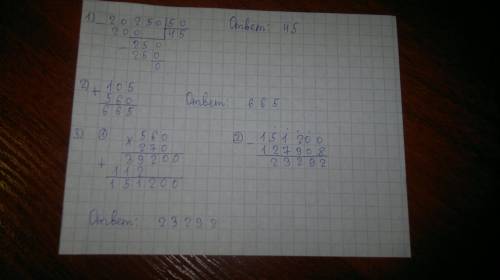 1) - 20250 | 50   Ответ: 45
200 | 45
- 250
250
0
2) + 105
560   Ответ: 665
665
3) ① × 560   ② - 151200
270   127908
39200   23292
+ 112
151200
Ответ: 23292